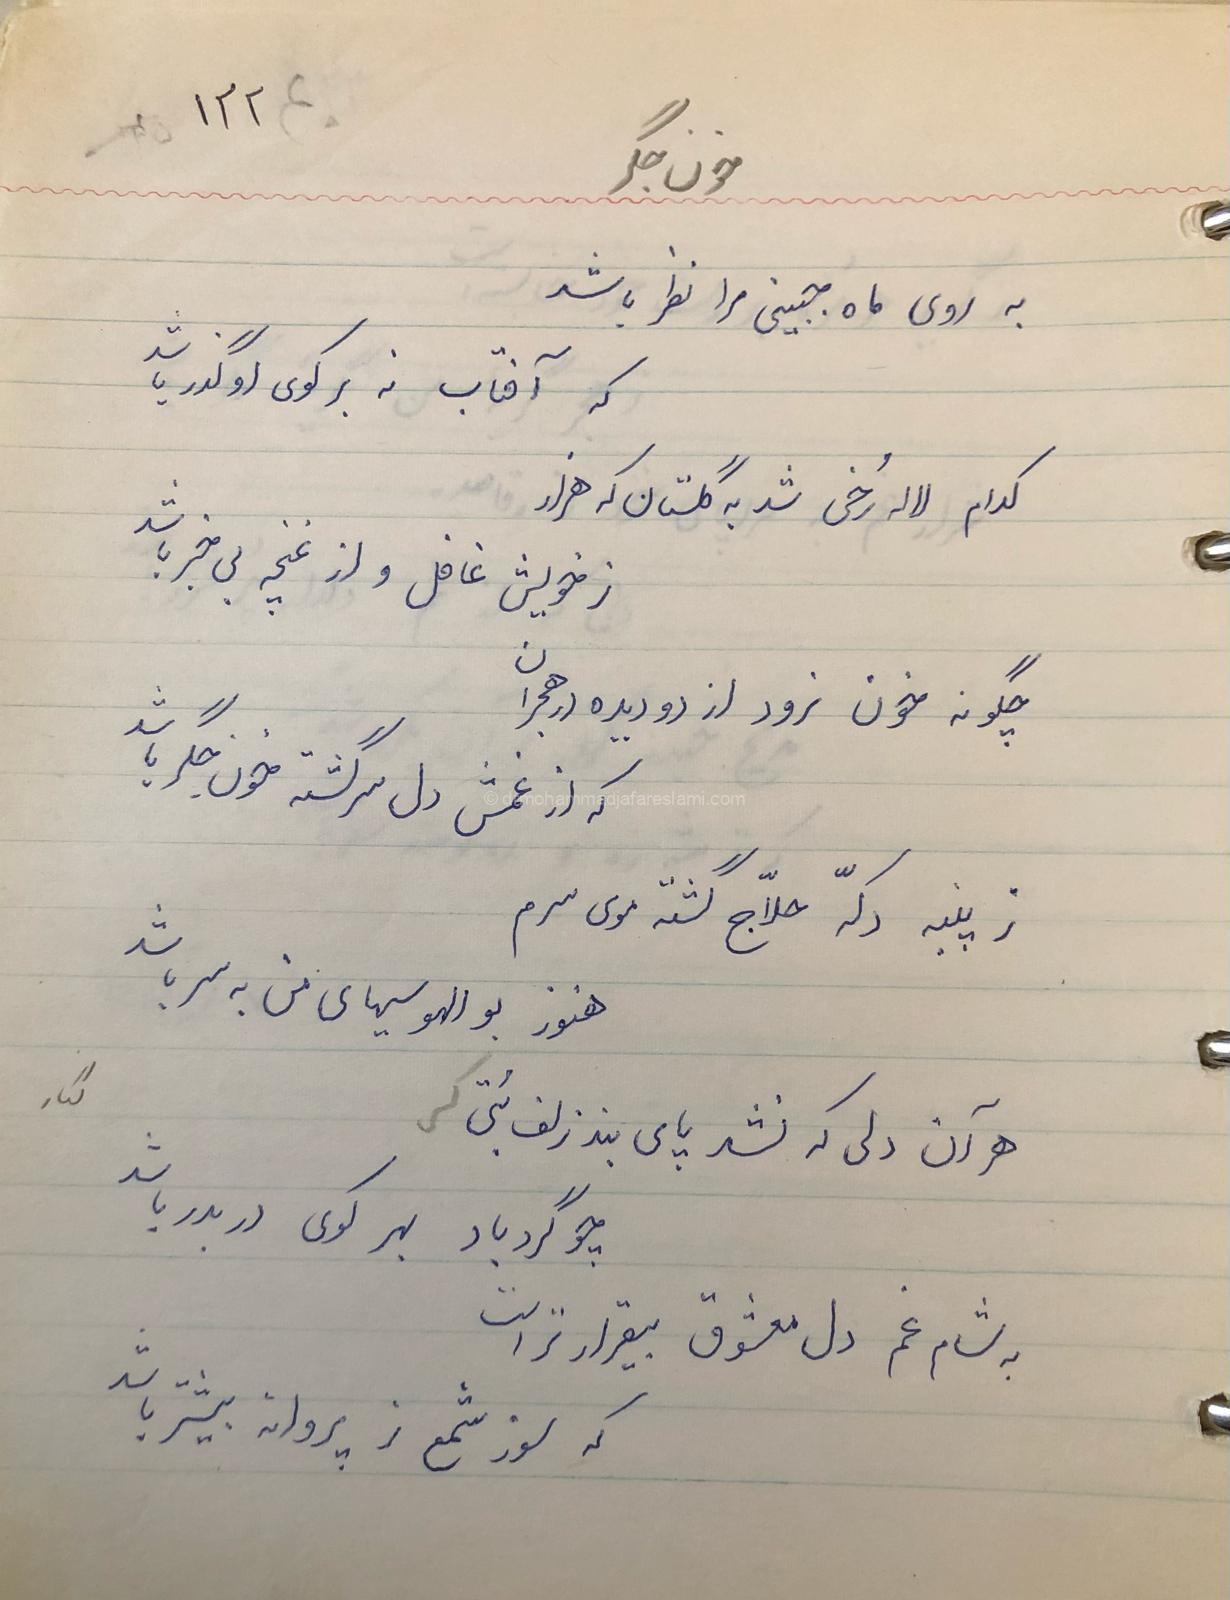 ۱۲۲
خون جگر
به روی ماه جبینی مرا نظر باشد
که آفتاب نه بر کوی او گذر باشد
کدام لاله رُخی شد به گلستان که هزار
ز خویش غافل و از غنچه بی خبر باشد
چگونه خون نرود از دو دیده در هجران
که از غمش دل سرگشته خون جگر باشد
© drmohammadjafareslami.com
ز پنبه دکّهٔ حلّاج گشته موی سرم
هنوز بوالهوسیهای من به سر باشد
هر آن دلی که نشد پای بند زلف بُتی
نگار
چو گردباد بهر کوی دربدر باشد
به شام غم دل معشوق بیقرارتر است
که سوز شمع ز پروانه بیشتر باشد